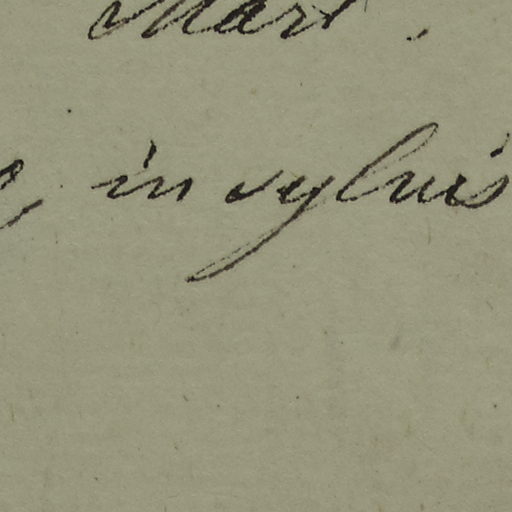 Mart.
in sylvis